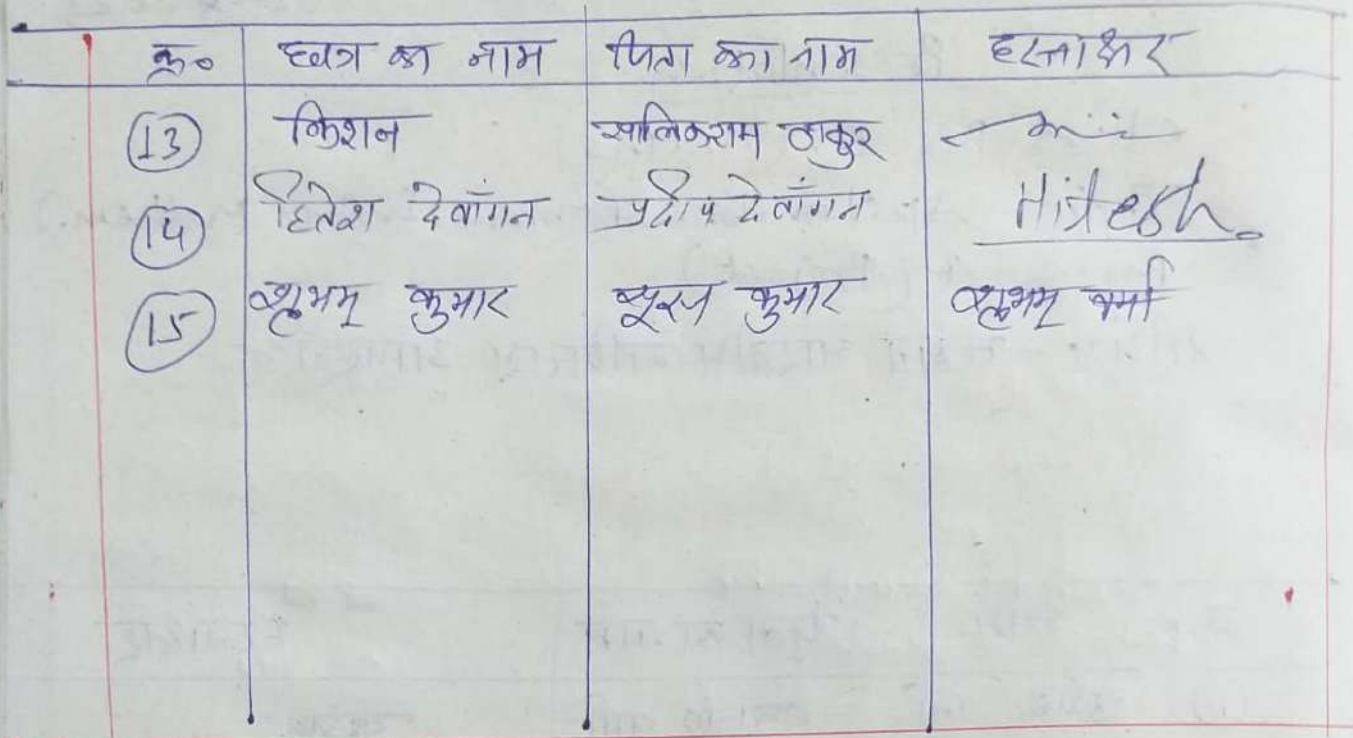 क्र० छात्र का नाम पिता का नाम हस्ताक्षर
(13) किशन सालिकराम ठाकुर
(14) हितेश देवाँगन प्रदीप देवाँगन Hitesh.
(15) शुभम् कुमार सूरज कुमार शुभम् वर्मा